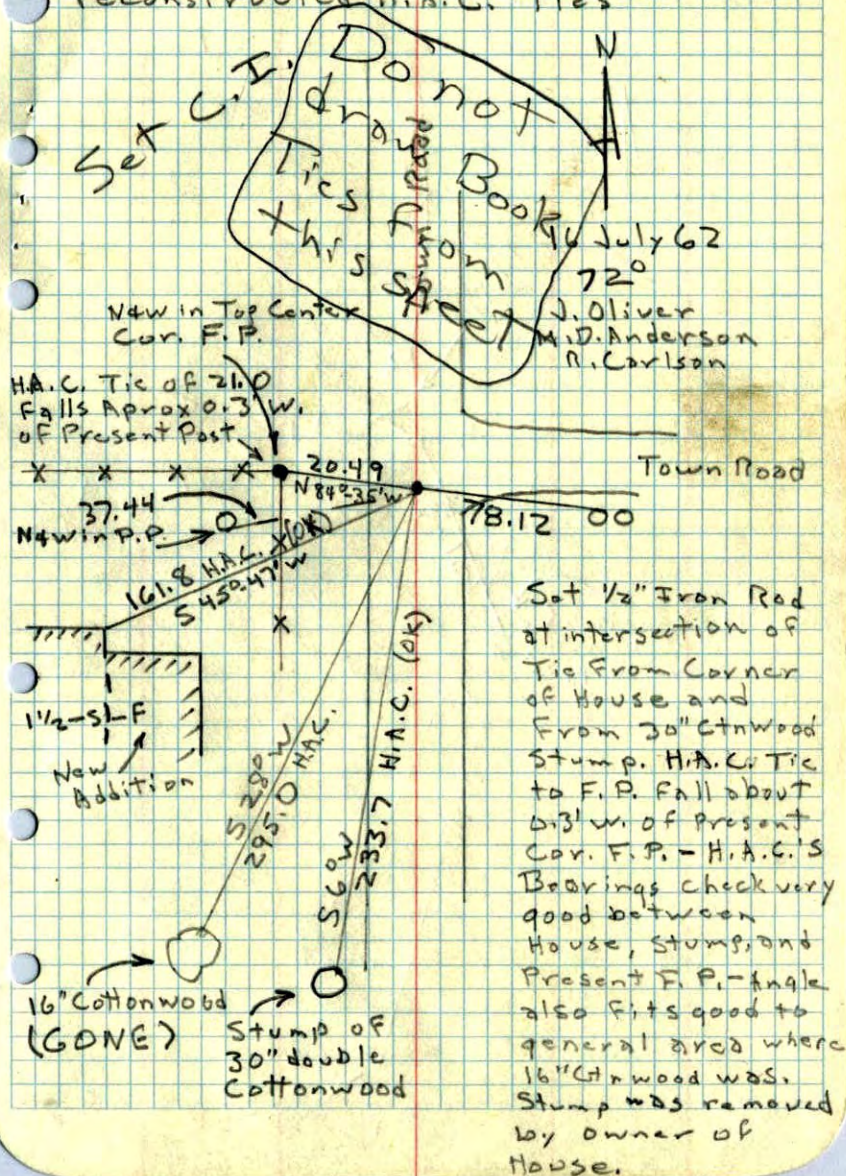 reconstructed H.A.C. Ties
Set C.I.
Do not
draft Book
Ties from
this sheet
Town Road
N
16 July 62
72°
J. Oliver
M.D. Anderson
R. Carlson
N&W in Top Center
Cor. F.P.
H.A.C. Tie of 21.0
Falls Aprox 0.3' W.
of Present Post
20.49
N 84°-35' W
Town Road
78.12
37.44
N&W in P.P.
161.8 H.A.C. (OK)
S 45°-47' W
1½-S-F
New
Addition
S 28° W
295.0 H.A.C.
S 6° W
233.7 H.A.C. (OK)
16" Cottonwood
(GONE)
Stump of
30" double
Cottonwood
Set ½" Iron Rod
at intersection of
Tie From Corner
of House and
From 30" Ctnwood
Stump. H.A.C. Tie
to F.P. Fall about
0.3' W. of Present
Cor. F.P. - H.A.C.'s
Bearings check very
good between
House, Stump, and
Present F.P. - Angle
also Fits good to
general area where
16" Ctnwood was.
Stump was removed
by owner of
House.